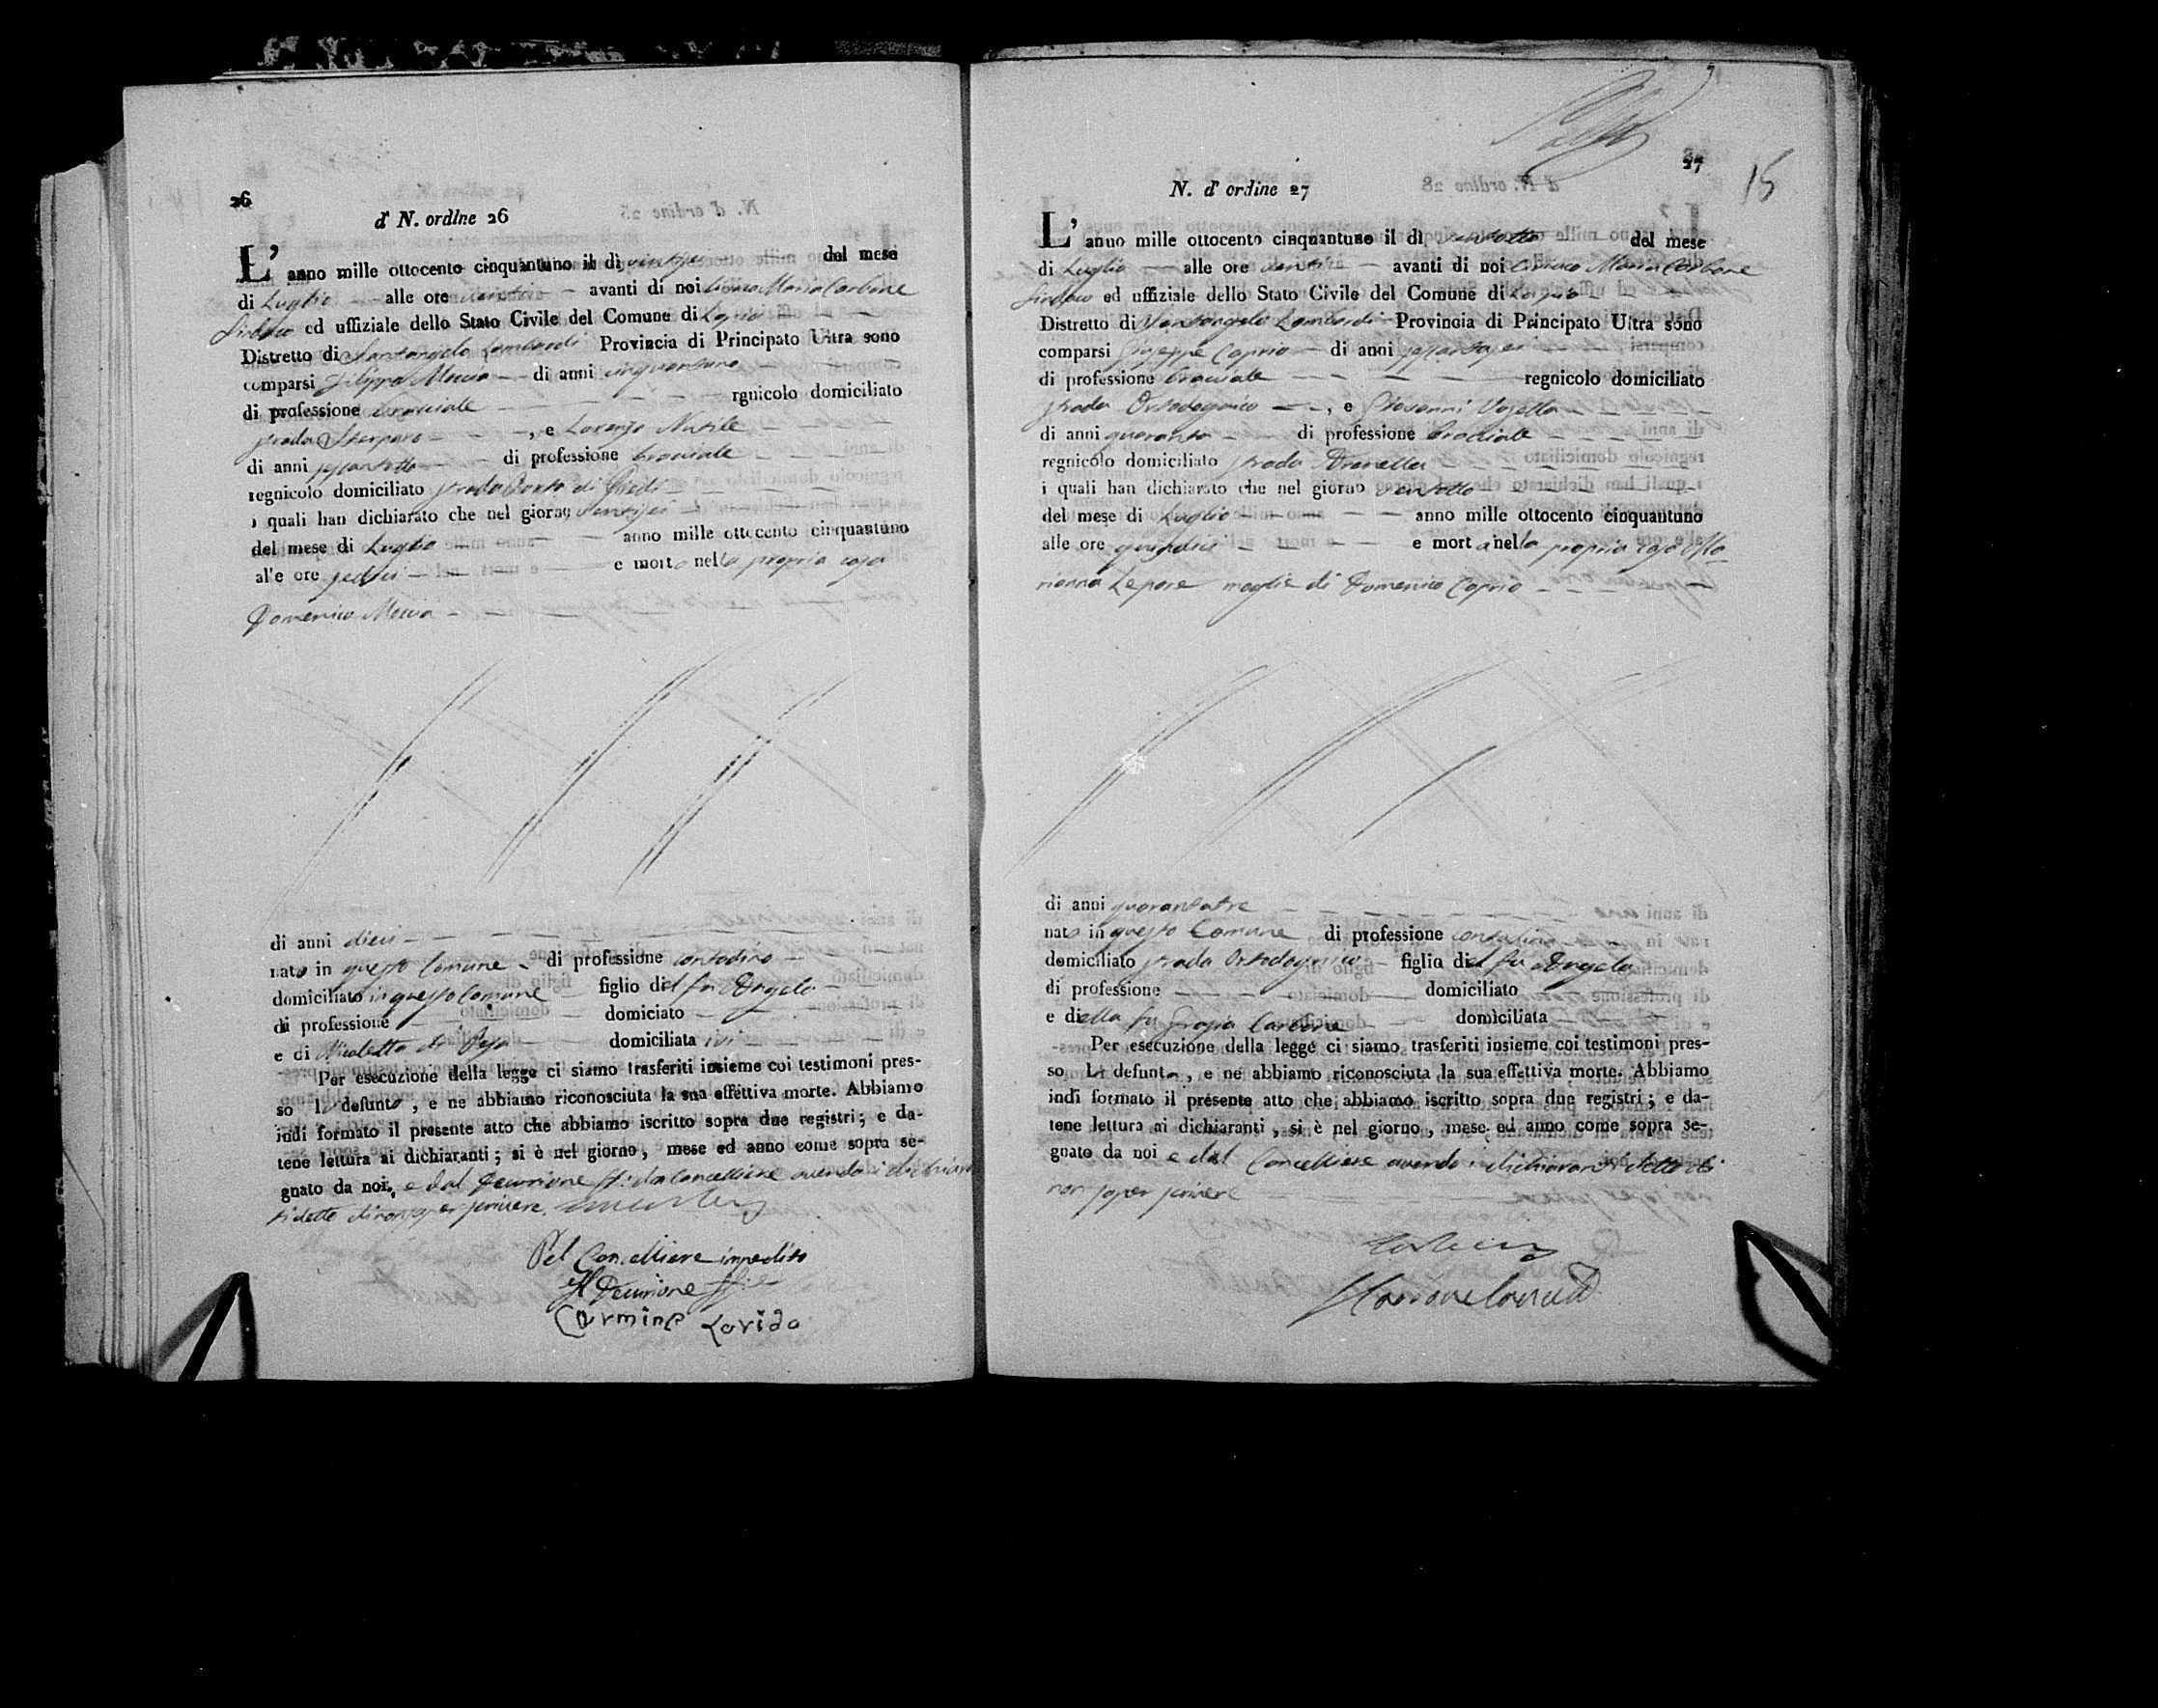 26
d' N. ordine 26
L' anno mille ottocento cinquantuno il dì ventisei del mese
di Luglio alle ore avanti di noi Maria Carbone
Sindaco ed uffiziale dello Stato Civile del Comune di
Distretto di Santangelo Lombardi Provincia di Principato Ultra sono
comparsi Filippo Moccia di anni cinquantuno
di professione bracciale rgnicolo domiciliato
strada , e Lorenzo Natale
di anni sessantotto di professione bracciale
regnicolo domiciliato strada di
i quali han dichiarato che nel giorno ventisei
del mese di Luglio anno mille ottocento cinquantuno
al'e ore sedici e morto nella propria casa
Domenico Moccia
di anni dieci
nato in questo Comune di professione contadino
domiciliato in questo Comune figlio del fu Angelo
di professione domiciato
e di Nicoletta domiciliata ivi
Per esecuzione della legge ci siamo trasferiti insieme coi testimoni pres-
so lo defunto , e ne abbiamo riconosciuta la sua effettiva morte. Abbiamo
indi formato il presente atto che abbiamo iscritto sopra due registri; e da-
tene lettura ai dichiaranti; si è nel giorno, mese ed anno come sopra se-
gnato da noi, e dal Decurione ff: da Cancelliere avendo i dichiaran
ti detto di non saper scrivere.
Pel Cancelliere impedito
Il Decurione ff:
Carmine Larido
27
15
N. d' ordine 27
L' anno mille ottocento cinquantuno il dì ventotto del mese
di Luglio alle ore avanti di noi Maria Carbone
Sindaco ed uffiziale dello Stato Civile del Comune di
Distretto di Santangelo Lombardi Provincia di Principato Ultra sono
comparsi Giuseppe Caprio di anni sessantasei
di professione bracciale regnicolo domiciliato
strada Ortodonico , e Giovanni Vasella
di anni quaranta di professione bracciale
regnicolo domiciliato strada
i quali han dichiarato che nel giorno ventotto
del mese di Luglio anno mille ottocento cinquantuno
alle ore quindici e morta nella propria casa Ma-
rianna Lepore moglie di Domenico Caprio
di anni quarantatre
nata in questo Comune di professione contadina
domiciliato strada Ortodonico figlia del fu Angelo
di professione domiciliato
e della fu Grazia Carbone domiciliata
Per esecuzione della legge ci siamo trasferiti insieme coi testimoni pres-
so la defunta, e ne abbiamo riconosciuta la sua effettiva morte. Abbiamo
indi formato il presente atto che abbiamo iscritto sopra due registri; e da-
tene lettura ai dichiaranti, si è nel giorno, mese ed anno come sopra se-
gnato da noi e dal Cancelliere avendo i dichiaranti detto di
non saper scrivere